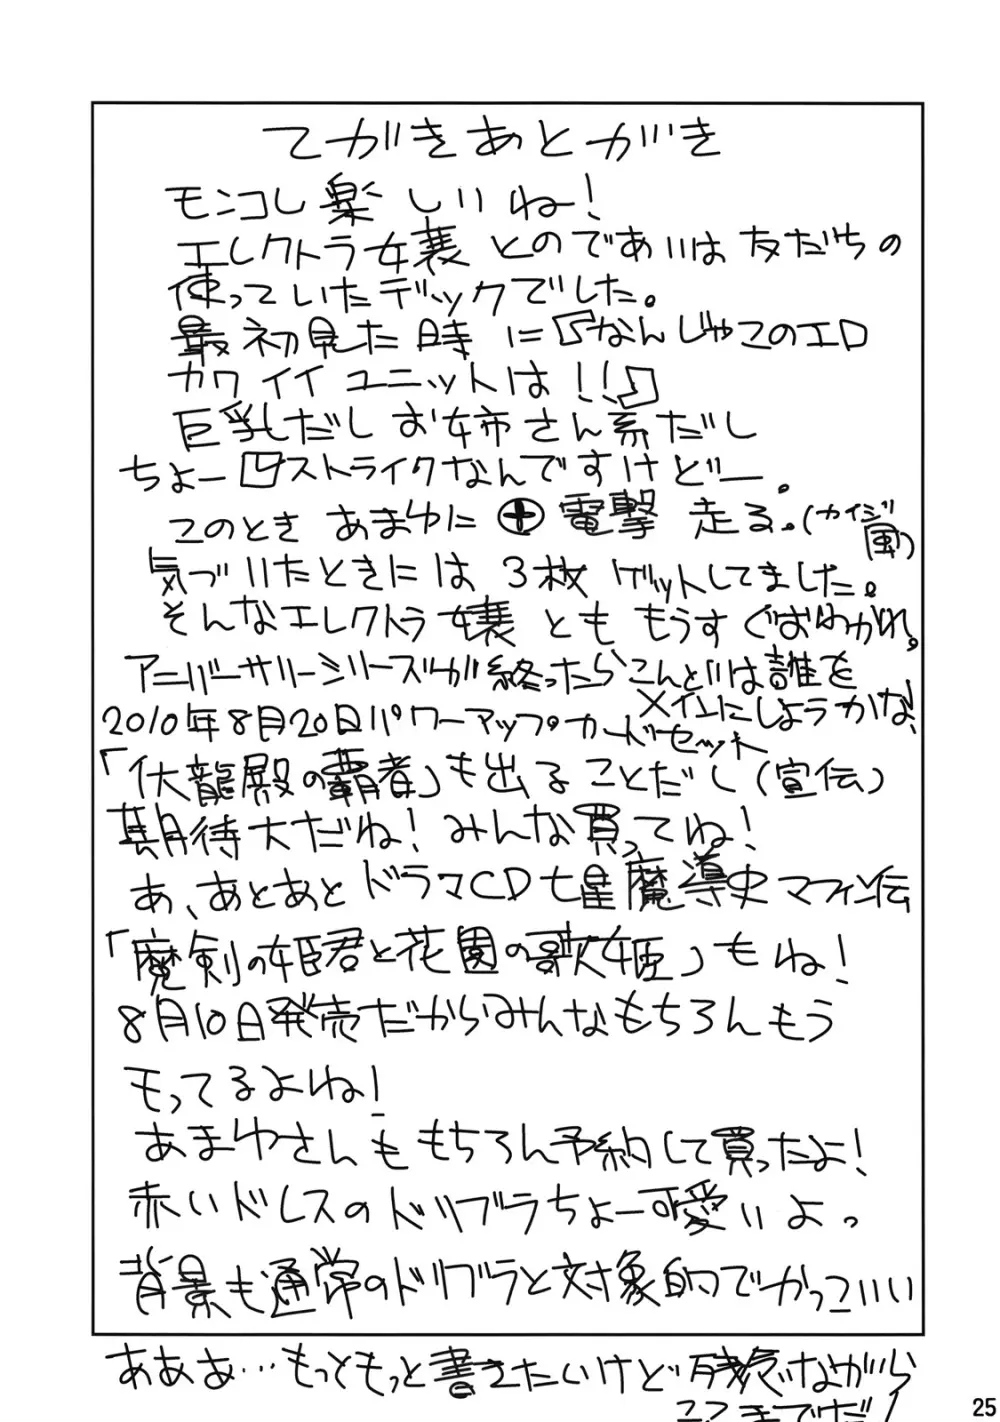 てがきあとがき
モンコレ楽しいね！
エレクトラ嬢とのであいは友だちの
使っていたデックでした。
最初見た時に『なんじゃこのエロ
カワイイユニットは！！』
巨乳だしお姉さん系だし
ちょーストライクなんですけどー。
このときあまゆに電撃走る。(カイジ
風)
気づいたときには3枚ゲットしてました。
そんなエレクトラ嬢とももうすぐおわかれ。
アニバーサリーシリーズが終ったらこんどは誰を
メインにしようかな!
2010年8月20日パワーアップ・カードセット
「伏龍殿の覇者」も出ることだし(宣伝)
期待大だね！みんな買ってね！
あ、あとあとドラマCD七星魔導史マフィン伝
「魔剣の姫君と花園の歌姫」もね！
8月10日発売だからみんなもちろんもう
モってるよね！
あまゆさんももちろん予約して買ったよ！
赤いドレスのドリブラちょー可愛いよっ
背景も通常のドリブラと対象的でかっこいい
あああ…もっともっと書きたいけど残念ながら
ここまでだ！
25